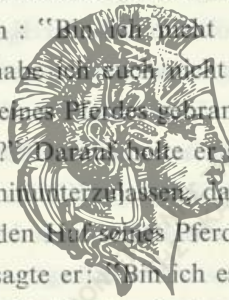 n : “Bin ich nicht
habe ich euch nicht
eines Pferdes gebran
?” Darauf holte er
hinunterzulassen, da
den Huf seines Pferd
sagte er: “Bin ich e